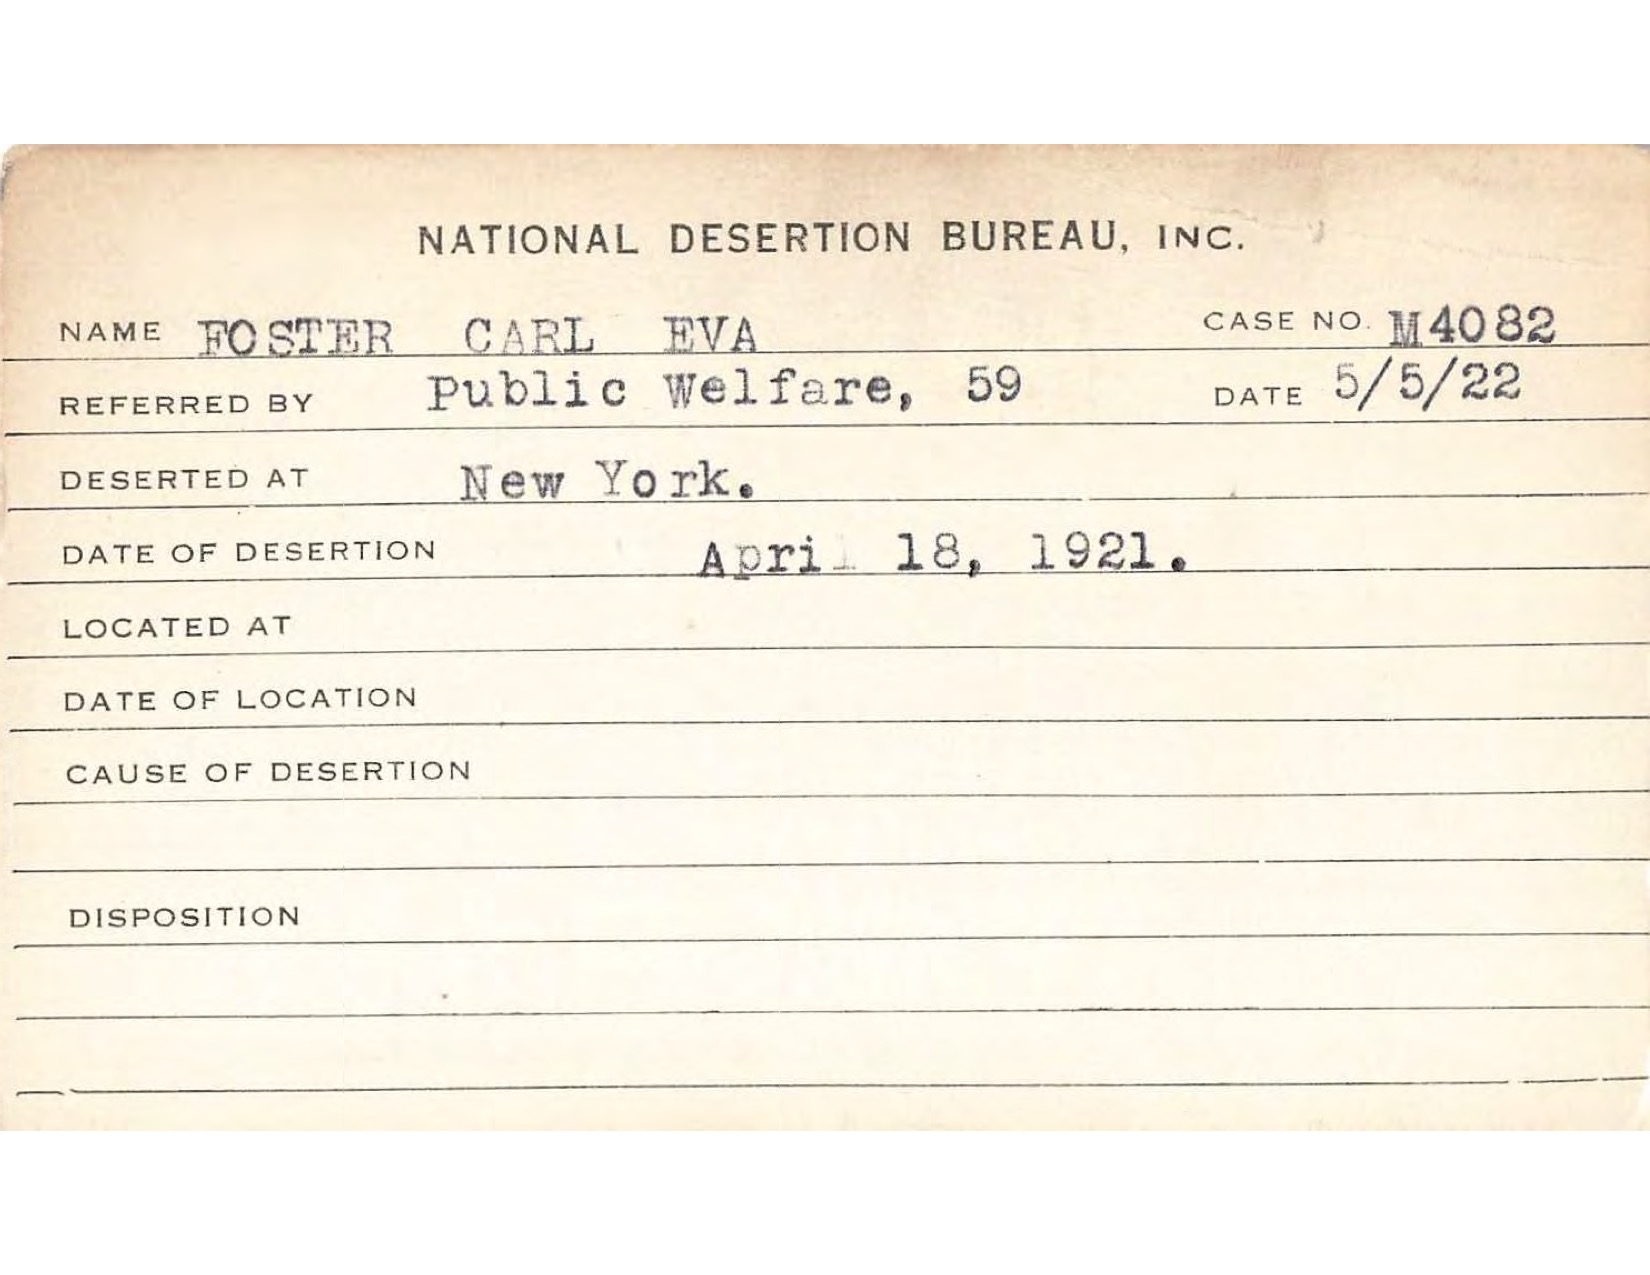 NATIONAL DESERTION BUREAU, INC.
NAME FOSTER CARL EVA CASE NO. M4082
REFERRED BY Public Welfare, 59 DATE 5/5/22
DESERTED AT New York.
DATE OF DESERTION April 18, 1921.
LOCATED AT
DATE OF LOCATION
CAUSE OF DESERTION
DISPOSITION